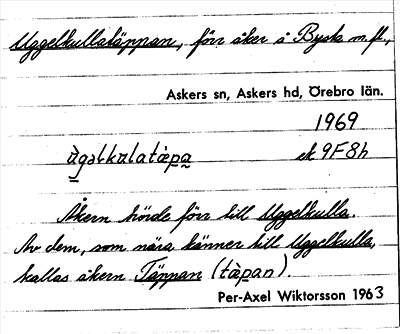 Uggelkullatäppan, förr åker å Bysta m.fl.,
Askers sn, Askers hd, Örebro län.
1969
ùgəlkulatæ̀pa ek 9F8h
Åkern hörde förr till Uggelkulla.
Av dem, som nära känner till Uggelkulla,
kallas åkern Täppan (tæ̀pan).
Per-Axel Wiktorsson 1963